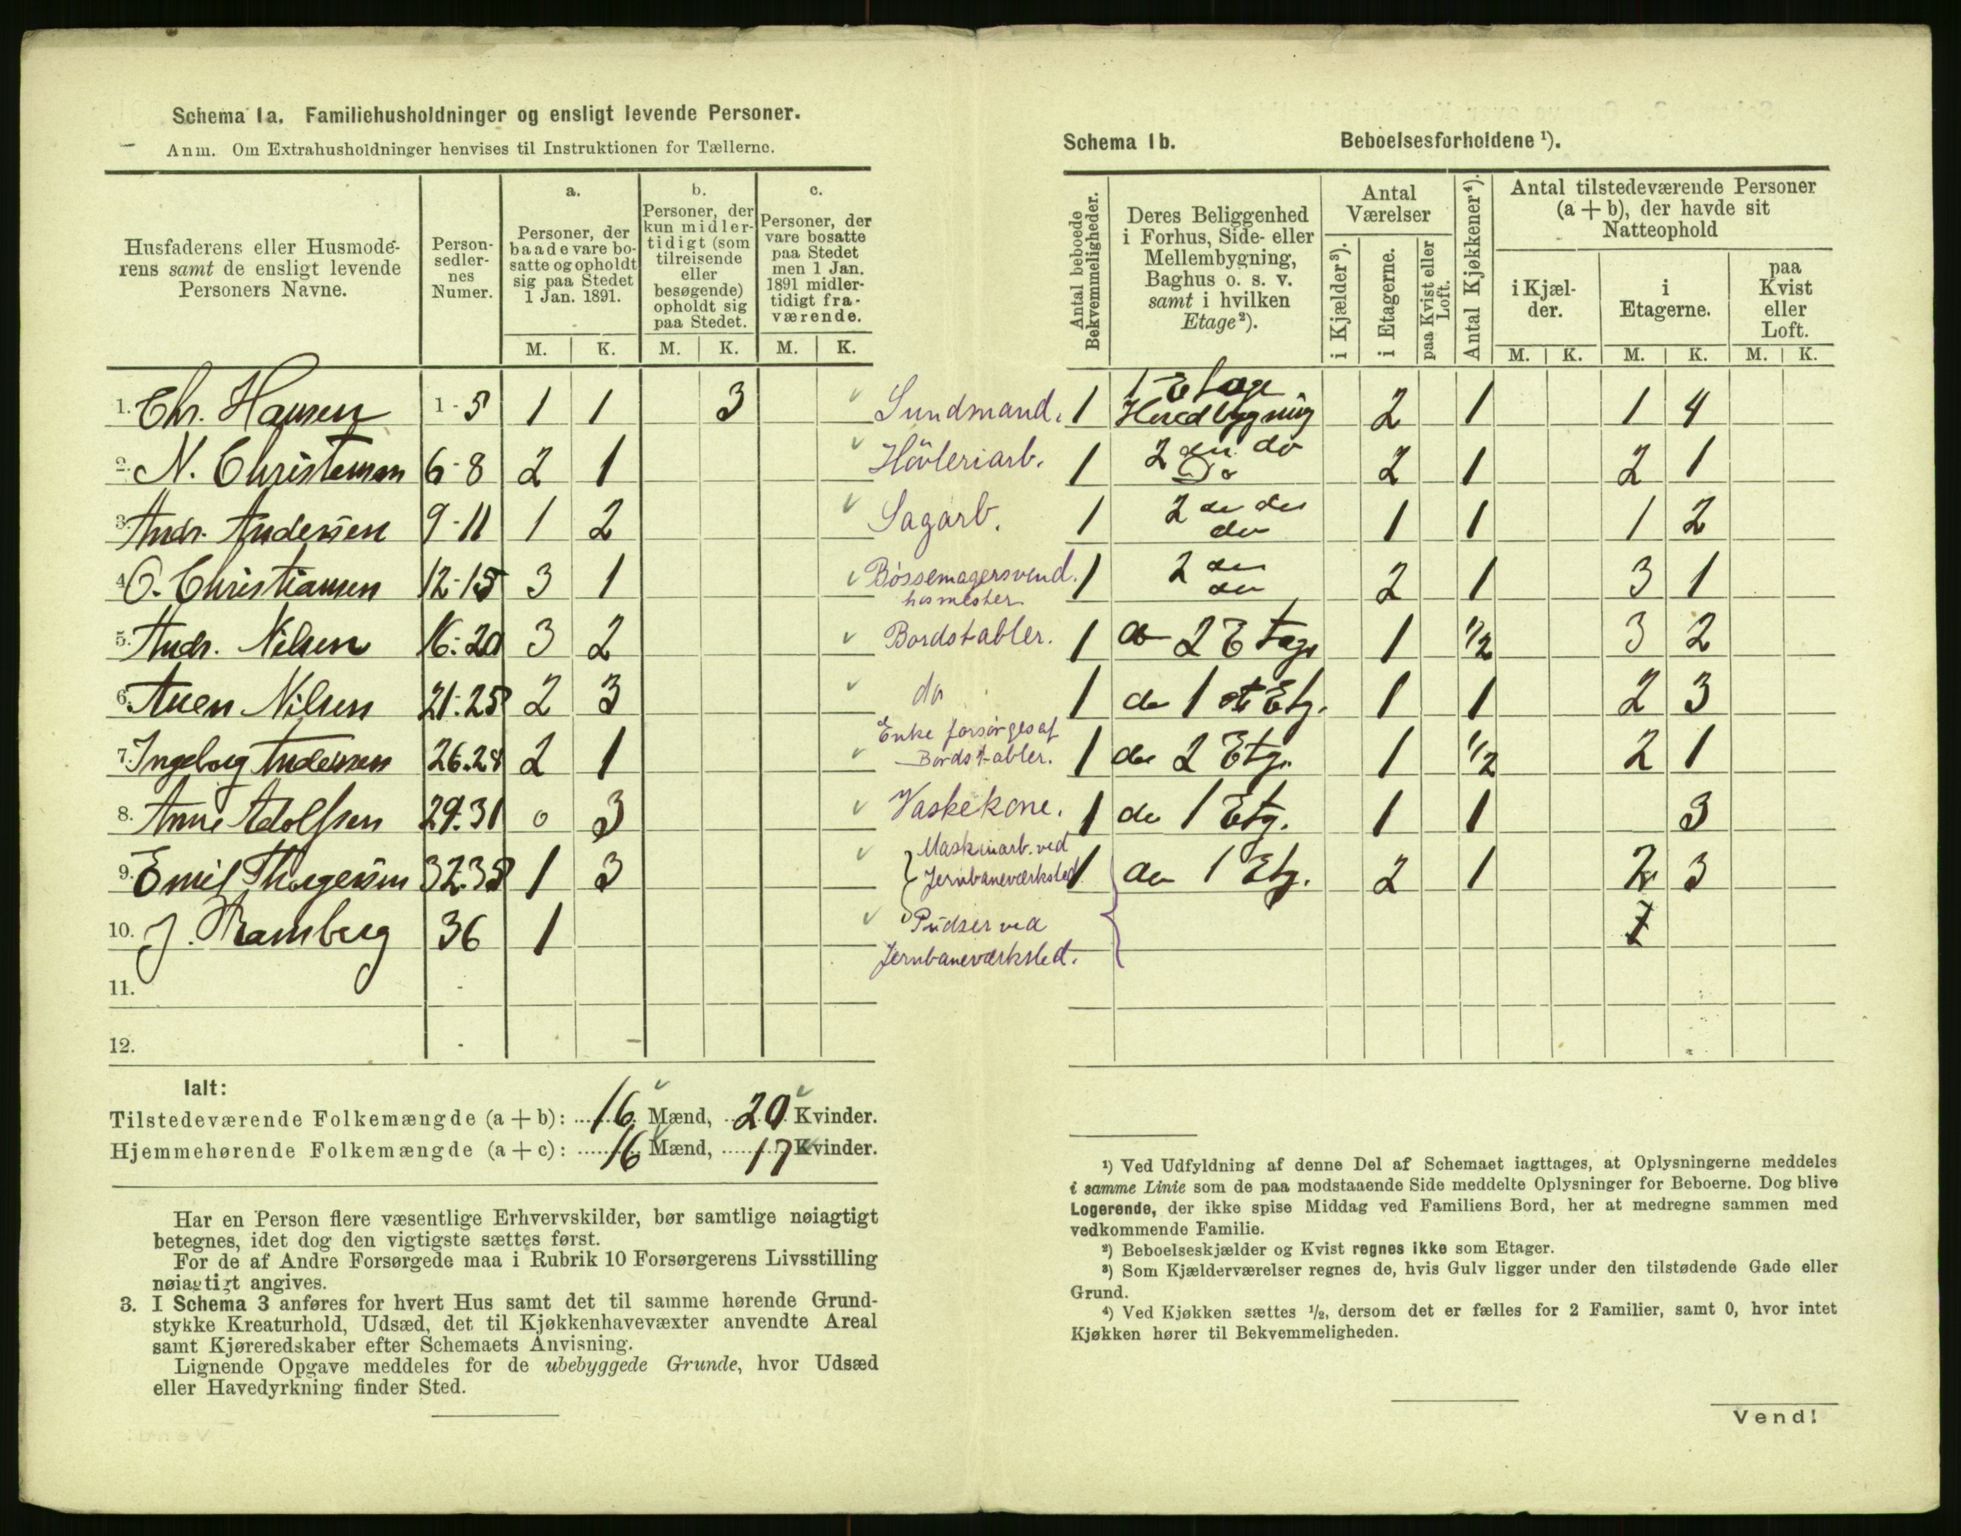 Schema 1a. Familiehusholdninger og ensligt levende Personer.
Anm. Om Extrahusholdninger henvises til Instruktionen for Tællerne.
Husfaderens eller Husmoderens samt de ensligt levende Personers Navne.
Personsedlernes Numer.
a. Personer, der baade vare bosatte og opholdt sig paa Stedet 1 Jan. 1891.
b. Personer, der kun midlertidigt (som tilreisende eller besøgende) opholdt sig paa Stedet.
c. Personer, der vare bosatte paa Stedet men 1 Jan. 1891 midlertidigt fraværende.
M. K. M. K. M. K.
1. Chr. Hansen 1-5 1 1 3 Sundmand.
2. N. Christensen 6-8 2 1 Høvleriarb.
3. Andr. Andersen 9-11 1 2 Sagarb.
4. O. Christiansen 12-15 3 1 Bøssemagersvend.
5. Andr. Nilsen 16-20 3 2 Bordstabler.
6. Nilsen 21.25 2 3 do
7. Ingeborg Andersen 26.28 2 1 Enke forsørges af Bordstabler.
8. Anne Adolfsen 29.31 0 3 Vaskekone.
9. Emil Thorgersen 32.35 1 3 Maskinarb. ved Jernbaneværksted
10. J. Ramberg 36 1 Pudser ved Jernbaneværksted.
11.
12.
Ialt:
Tilstedeværende Folkemængde (a + b): 16 Mænd, 20 Kvinder.
Hjemmehørende Folkemængde (a + c): 16 Mænd, 17 Kvinder.
Har en Person flere væsentlige Erhvervskilder, bør samtlige nøiagtigt
betegnes, idet dog den vigtigste sættes først.
For de af Andre Forsørgede maa i Rubrik 10 Forsørgerens Livsstilling
nøiagtigt angives.
3. I Schema 3 anføres for hvert Hus samt det til samme hørende Grund-
stykke Kreaturhold, Udsæd, det til Kjøkkenhavevæxter anvendte Areal
samt Kjøreredskaber efter Schemaets Anvisning.
Lignende Opgave meddeles for de ubebyggede Grunde, hvor Udsæd
eller Havedyrkning finder Sted.
Schema 1b. Beboelsesforholdene ¹).
Antal beboede Bekvemmeligheder.
Deres Beliggenhed i Forhus, Side- eller Mellembygning, Baghus o. s. v. samt i hvilken Etage²).
Antal Værelser
i Kjælder³).
i Etagerne.
paa Kvist eller Loft.
Antal Kjøkkener⁴).
Antal tilstedeværende Personer (a + b), der havde sit Natteophold
i Kjælder.
i Etagerne.
paa Kvist eller Loft.
M. K. M. K. M. K.
1 1 Etage Hovedbygning 2 1 1 4
1 2 den do Do 2 1 2 1
1 2 de do 1 1 1 2
1 2 den do 2 1 3 1
1 do 2 Etage 1 1/2 3 2
1 do 1 ste Etg. 1 1 2 3
1 do 2 Etg. 1 1/2 2 1
1 do 1 Etg. 1 1 3
1 do 1 Etg. 2 1 2 3
¹) Ved Udfyldning af denne Del af Schemaet iagttages, at Oplysningerne meddeles
i samme Linie som de paa modstaaende Side meddelte Oplysninger for Beboerne. Dog blive
Logerende, der ikke spise Middag ved Familiens Bord, her at medregne sammen med
vedkommende Familie.
²) Beboelseskjælder og Kvist regnes ikke som Etager.
³) Som Kjælderværelser regnes de, hvis Gulv ligger under den tilstødende Gade eller
Grund.
⁴) Ved Kjøkken sættes ½, dersom det er fælles for 2 Familier, samt 0, hvor intet
Kjøkken hører til Bekvemmeligheden.
Vend!